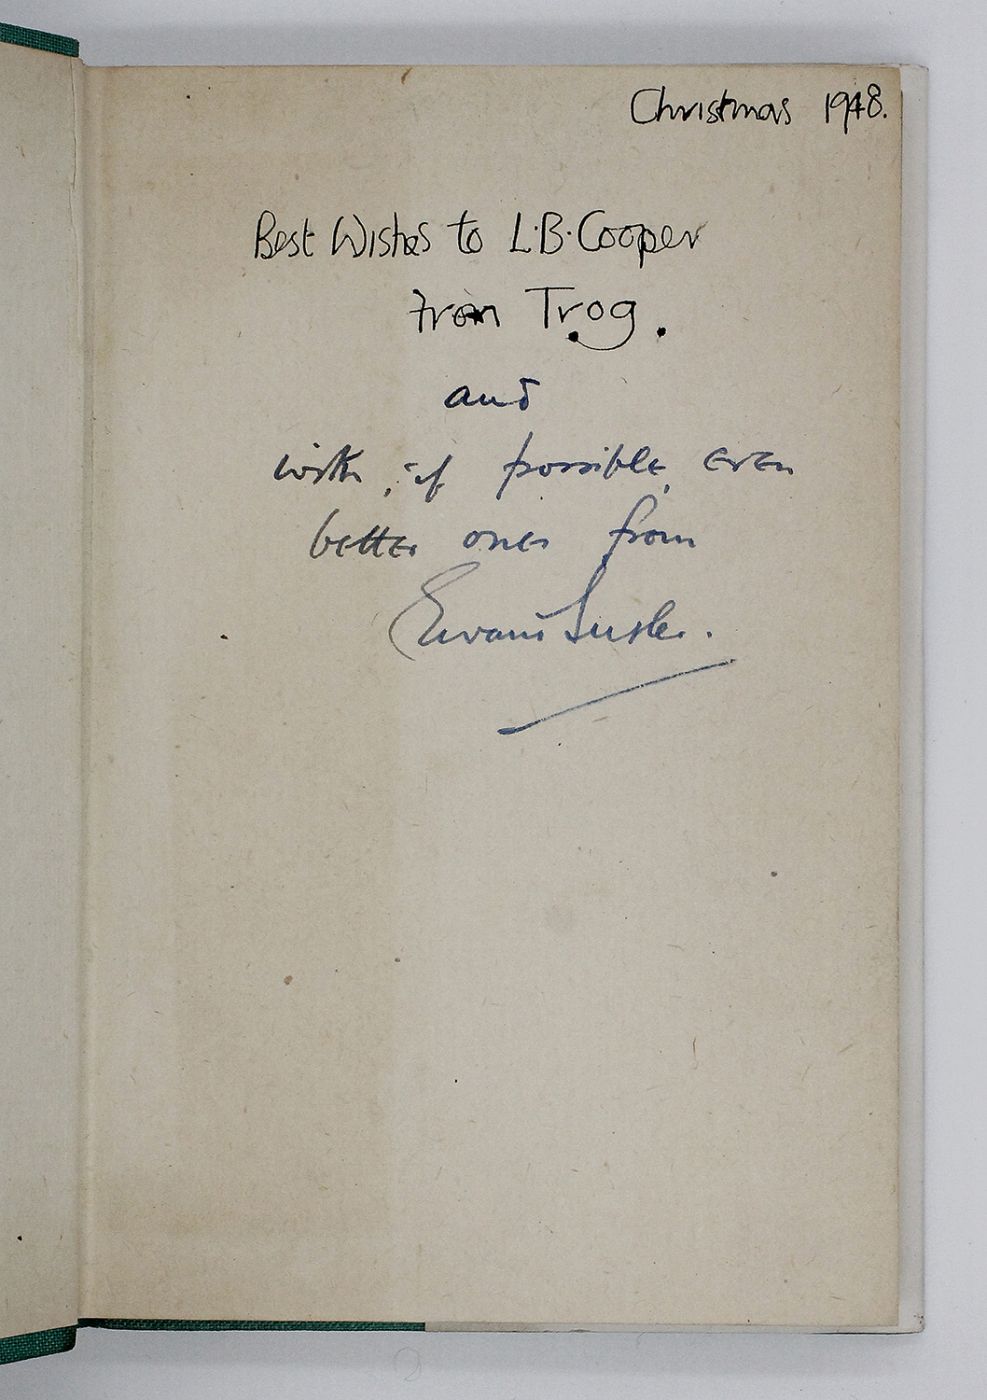 Christmas 1948.
Best Wishes to L.B. Cooper
from Trog.
and
with, if possible, even
better ones from